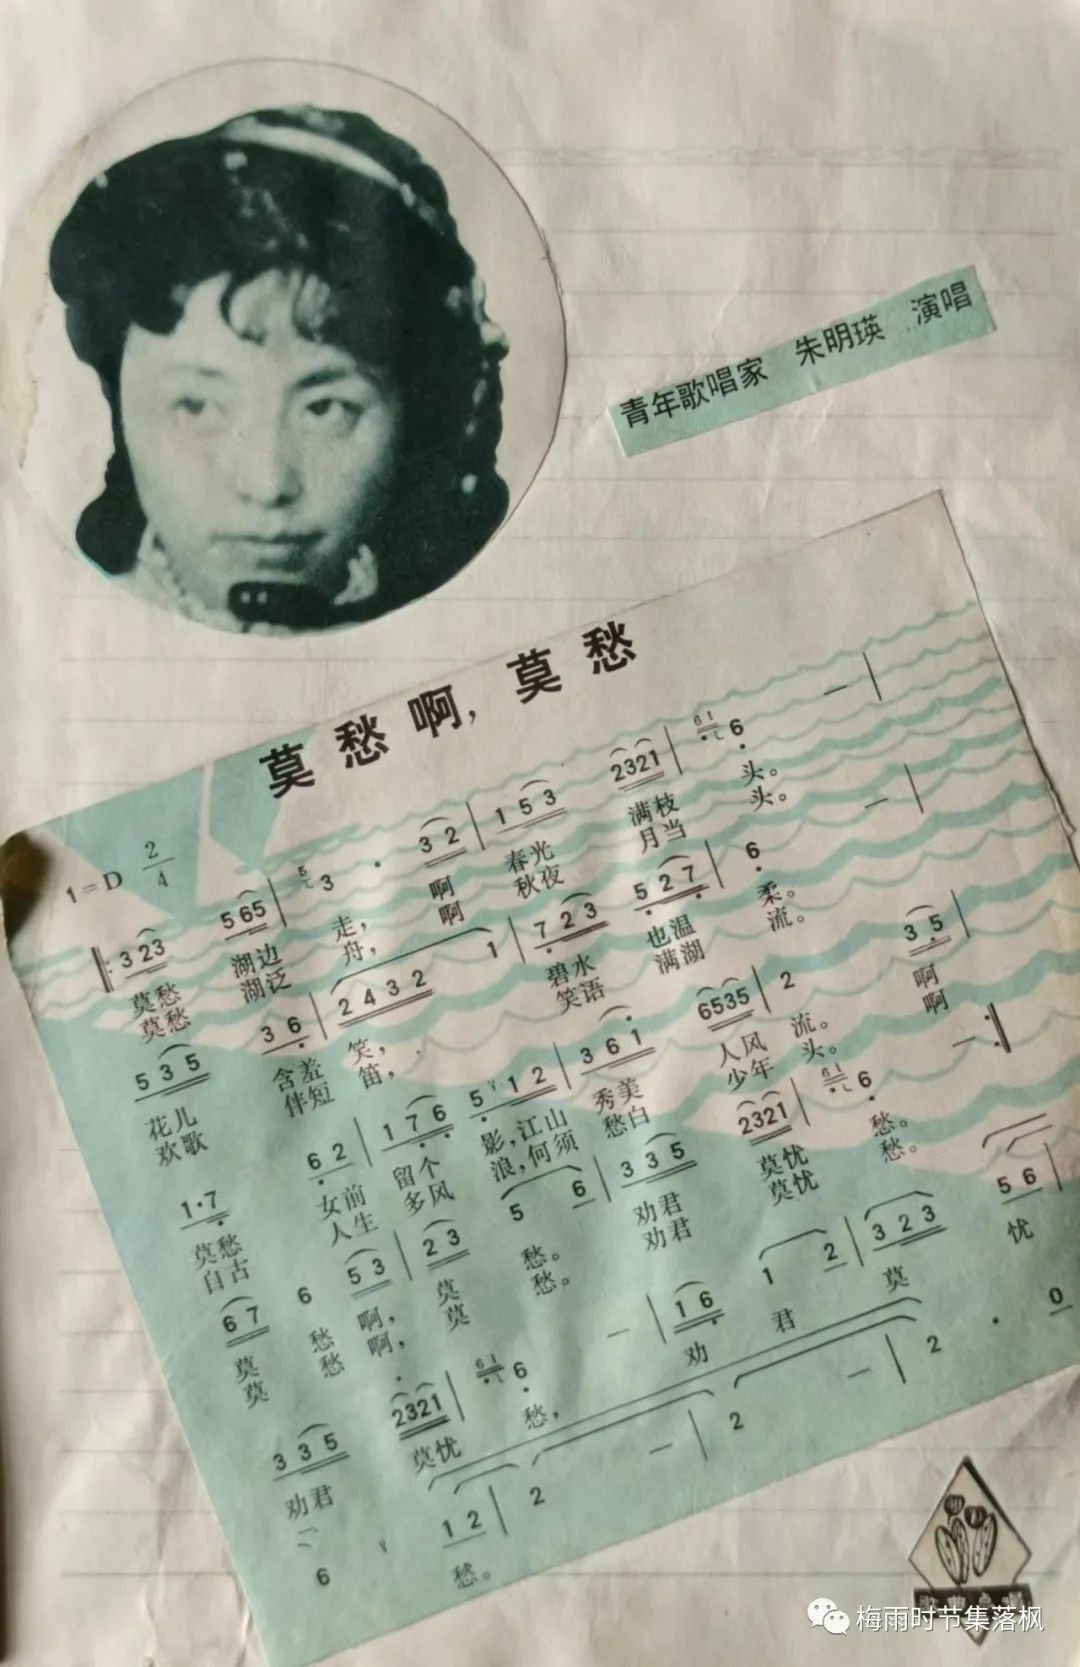 青年歌唱家 朱明瑛 演唱
莫愁啊，莫愁
1=D 2/4
‖: 3 2 3 5 6 5 | 5 3 · 3 2 | 1 5 3 2321 | 61 6 — |
莫愁 湖边 走， 啊 春光 满枝 头。
莫愁 湖泛 舟， 啊 秋夜 月当 头。
5 3 5 3 6 | 2 4 3 2 1 | 7 2 3 5 2 7 | 6 — |
花儿 含羞 笑， 碧水 也温 柔。
欢歌 伴短 笛， 笑语 满湖 流。
1·7 6 2 | 1 7 6 5 ∨ 1 2 | 3 6 1 6535 | 2 3 5 |
莫愁 女前 留个 影，江山 秀美 人风 流。 啊
自古 人生 多风 浪，何须 愁白 少年 头。 啊
6 7 6 5 3 | 2 3 5 6 | 3 3 5 2321 | 61 6 — :‖
莫 愁 啊， 莫 愁。 劝君 莫忧 愁。
莫 愁 啊， 莫 愁。 劝君 莫忧 愁。
3 3 5 2321 | 61 6 — | 1 6 1 2 | 3 2 3 5 6 |
劝君 莫忧 愁， 劝 君 莫 忧
6 ∨ 1 2 | 2 — | 2 — | 2 · 0
愁。
梅雨时节集落枫